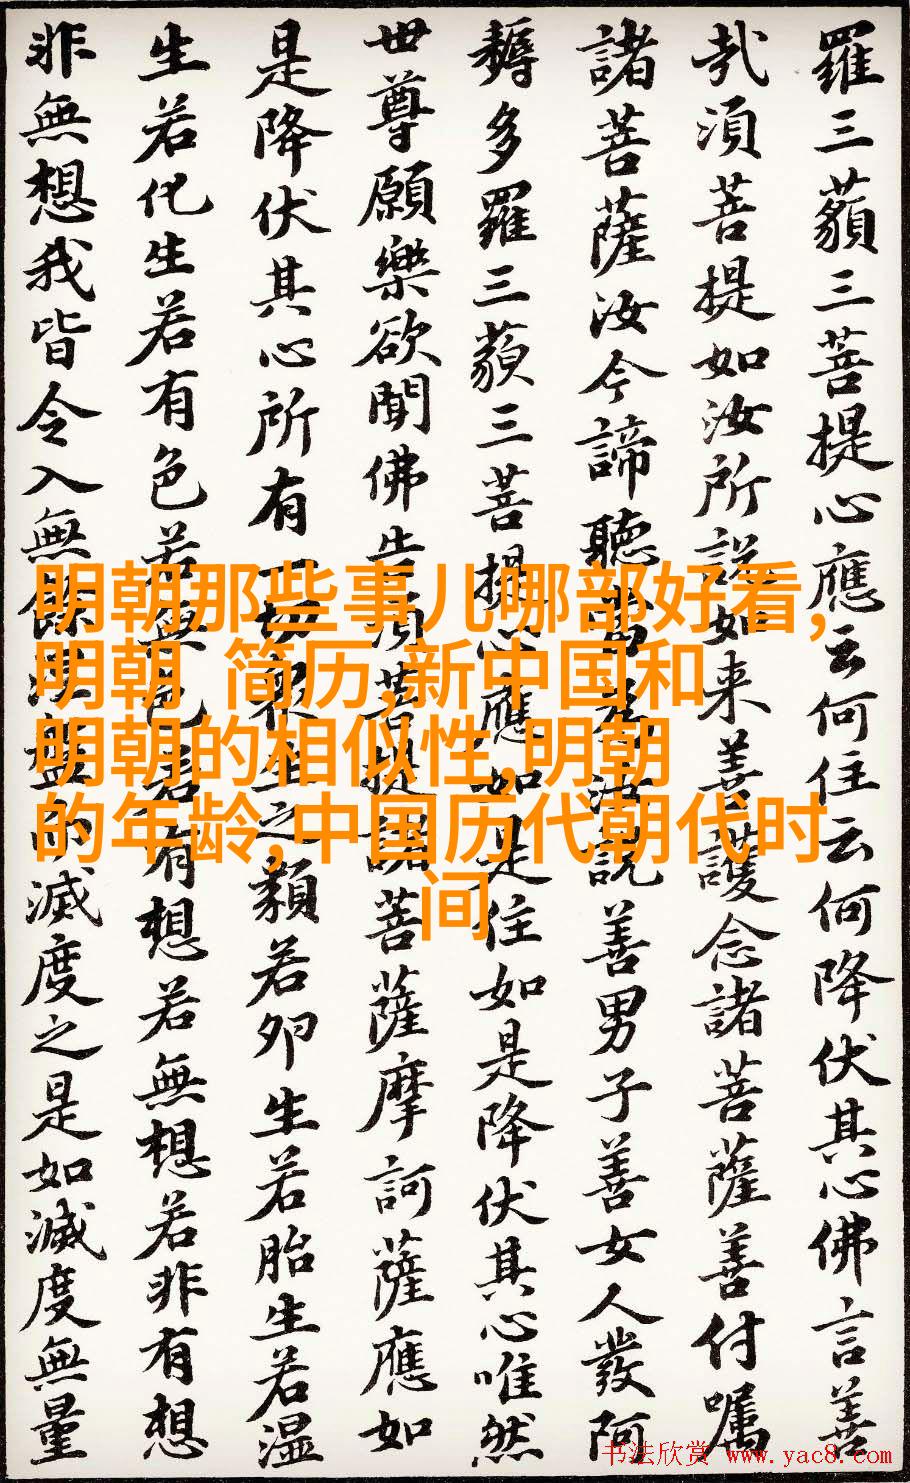 羅三藐三菩提心應云何住云何降伏其心佛言善
哉須菩提如汝所說如来善護念諸菩薩善付嘱
諸菩薩汝今諦聽當為汝說善男子善女人發阿
耨多羅三藐三菩提心應如是住如是降伏其心唯然
世尊願樂欲聞佛告須菩提諸菩薩摩訶薩應如
是降伏其心所有一切眾生之類若卵生若胎生若湿
生若化生若有色若無色若有想若無想若非有想
非無想我皆令入無餘涅盤而滅度之是如滅度無量
明朝那些事儿哪部好看,
明朝 简历,新中国和
明朝的相似性,明朝
的年龄,中国历代朝代时
间
书法欣赏 www.yac8.com